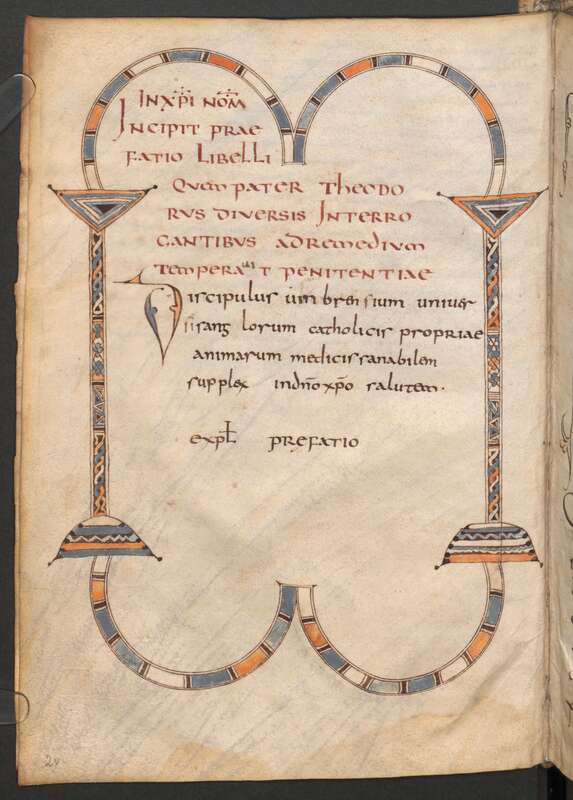 IN XPI NOM
INCIPIT PRAE
FATIO LIBELLI
QUEM PATER THEODO
RUS DIVERSIS INTERRO
GANTIBUS AD REMEDIUM
TEMPERAUIT PENITENTIAE
Discipulus umbrensium univer
sis anglorum catholicis propriae
animarum medicis sanabilem
supplex in dno xpo salutem.
expl prefatio